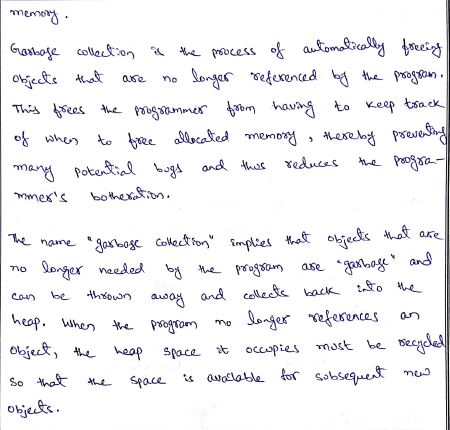 memory.
Garbage collection is the process of automatically freeing
objects that are no longer referenced by the program.
This frees the programmer from having to keep track
of when to free allocated memory, thereby preventing
many potential bugs and thus reduces the progra-
mmer's botheration.
The name "garbage collection" implies that objects that are
no longer needed by the program are "garbage" and
can be thrown away and collects back into the
heap. When the program no longer references an
object, the heap space it occupies must be recycled
so that the space is available for subsequent new
objects.